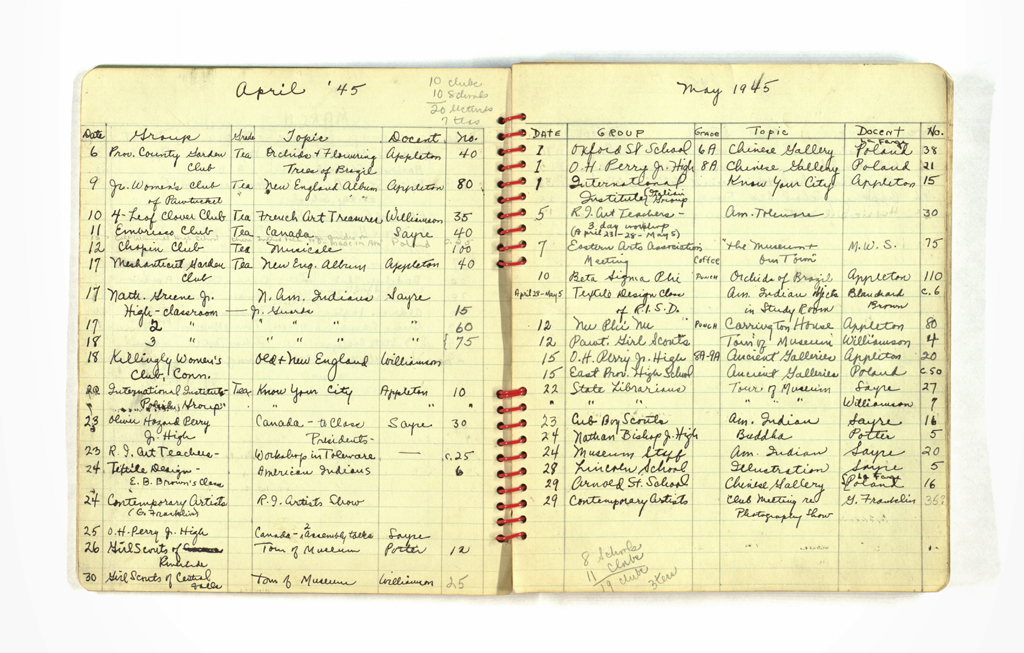 April '45
10 clubs
10 Schools
20 lectures
7 teas
Date Group Grade Topic Docent No.
6 Prov. County Garden Tea Orchids & Flowering Appleton 40
Club Trees of Brazil
9 Jr. Women's Club Tea New England Album Appleton 80
of Pawtucket
10 4-Leaf Clover Club Tea French Art Treasures Williamson 35
11 Embrisso Club Tea Canada Sayre 40
12 Chopin Club Tea Musicale 100
17 Meshanticut Garden Tea New Eng. Album Appleton 40
Club
17 Nath. Greene Jr. N. Am. Indians Sayre
High-classroom — Jr. Guards 15
17 2 " " " " " 60
18 3 " " " " " 75
18 Killingly Women's Old & New England Williamson
Club, Conn.
20 International Institute- Tea Know Your City Appleton 10
" " Polish Group" " " " "
23 Oliver Hazard Perry Canada - to Close Sayre 30
Jr. High Presidents-
23 R.I. Art Teachers- Workshop in Toleware — c.25
24 Textile Design- American Indians 6
E.B. Brown's Class
24 Contemporary Artists R.I. Artists Show
(G. Franklin)
25 O.H. Perry Jr. High Canada-2 assembly talks Sayre
26 Girl Scouts of Tour of Museum Potter 12
Rumford
30 Girl Scouts of Central Tour of Museum Williamson 25
Falls
May 1945
DATE GROUP Grade Topic Docent No.
1 Oxford St School 6A Chinese Gallery Poland 38
1 O.H. Perry Jr. High 8A Chinese Gallery Poland 21
1 International Know Your City Appleton 15
Institute (Italian Group
5 R.I. Art Teachers- Am. Toleware 30
3 day workshop
(April 23-28-May 5)
7 Eastern Arts Association "The Museum & M.W.S. 75
Meeting Coffee Our Town"
10 Beta Sigma Phi Punch Orchids of Brazil Appleton 110
April 28-May 5 Textile Design Class Am. Indian Objects Blanchard c.6
of R.I.S.D. in Study Room Brown
12 Nu Phi Nu Punch Carrington House Appleton 80
12 Pawt. Girl Scouts Tour of Museum Williamson 4
15 O.H. Perry Jr. High 8A-9A Ancient Galleries Appleton 20
15 East Prov. High School Ancient Galleries Poland c.50
22 State Librarians Tour of Museum Sayre 27
" " " " " Williamson 9
23 Cub Boy Scouts Am. Indian Sayre 16
24 Nathan Bishop Jr. High Buddha Potter 5
24 Museum Staff Am. Indian Sayre 20
28 Lincoln School Illustration Sayre 5
29 Arnold St. School Chinese Gallery Poland 16
29 Contemporary Artists Club Meeting re G. Franklin 35?
Photography Show
8 Schools
11 Clubs
19 clubs 3 teas